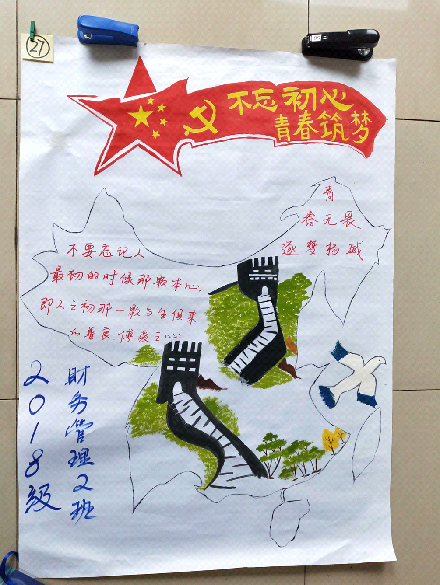 27
不忘初心
青春筑梦
青
春无畏
逐梦扬城
不要忘记人
最初的时候那颗本心,
即人之初那一颗与生俱来
财务管理2班
2018级